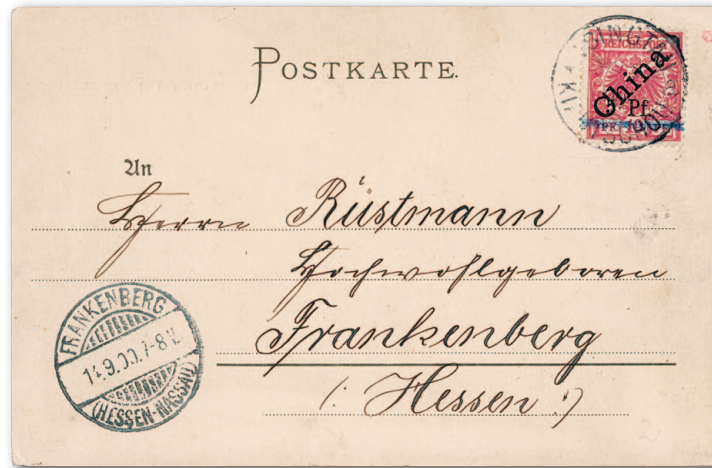 POSTKARTE.
REICHSPOST
China
Pf.
An
Herrn Rüstmann
Hochwohlgeboren
Frankenberg
(: Hessen :)
FRANKENBERG
14.9.00.7-8V.
(HESSEN-NASSAU)